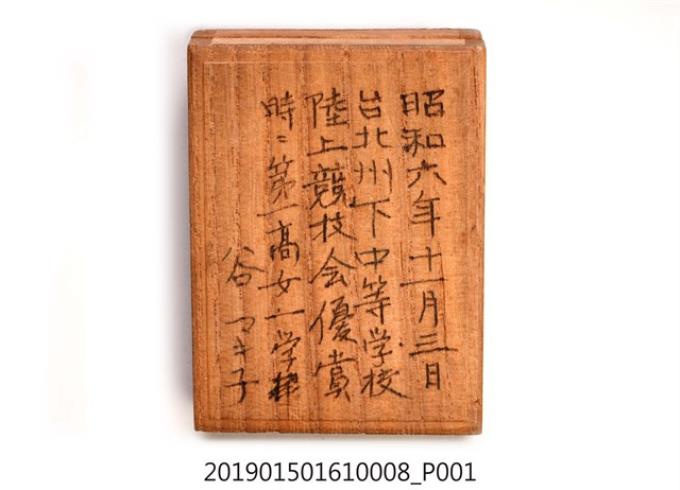 昭和六年十一月三日
台北州下中等学校
陸上競技会優賞
時ニ第一高女一学
谷マキ子
201901501610008_P001